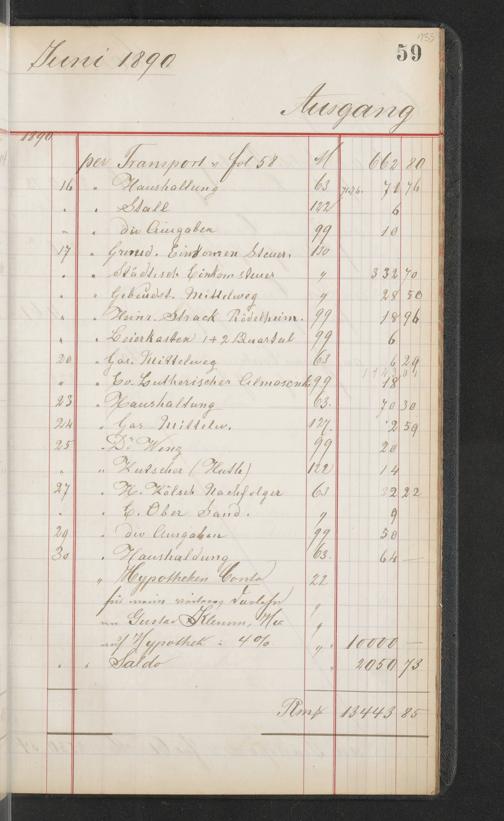 Juni 1890
59
Ausgang
1890
per Transport v fol 58 M 662 80
16 " Haushaltung 63 71 76
" " Stall 122 6
" " div Ausgaben 99 10
17 " Grund. Einkomen Steuer. 110
" " Städtisch Einkomsteuer " 332 70
" " Gebäudst. Mittelweg " 28 50
" " Heinr. Strack Rödelheim. 99 18 96
" " Leierkasten 1+2 Quartal 99 6
20 " Gas. Mittelweg 63 6 29
" " Ev. Lutherischer Almosenk 99 18
23 " Haushaltung 63. 70 30
24 " Gas Mittelw. 127. 2 59
25 " Dr Wenz 99 20
" " Kutscher (Huth) 122 14
27 " H. Kölsch Nachfolger 63 22 22
" " C. Ober Sand. " 9
29 " div Ausgaben 99 50
30 " Haushaldung 63. 64 —
" Hypotheken Conto 22
für mein Darlehn "
an Gustav Klemm, "
auf Hypothek : 4% " 10000 —
" " Saldo " 2050 73
Rmk 13443 85